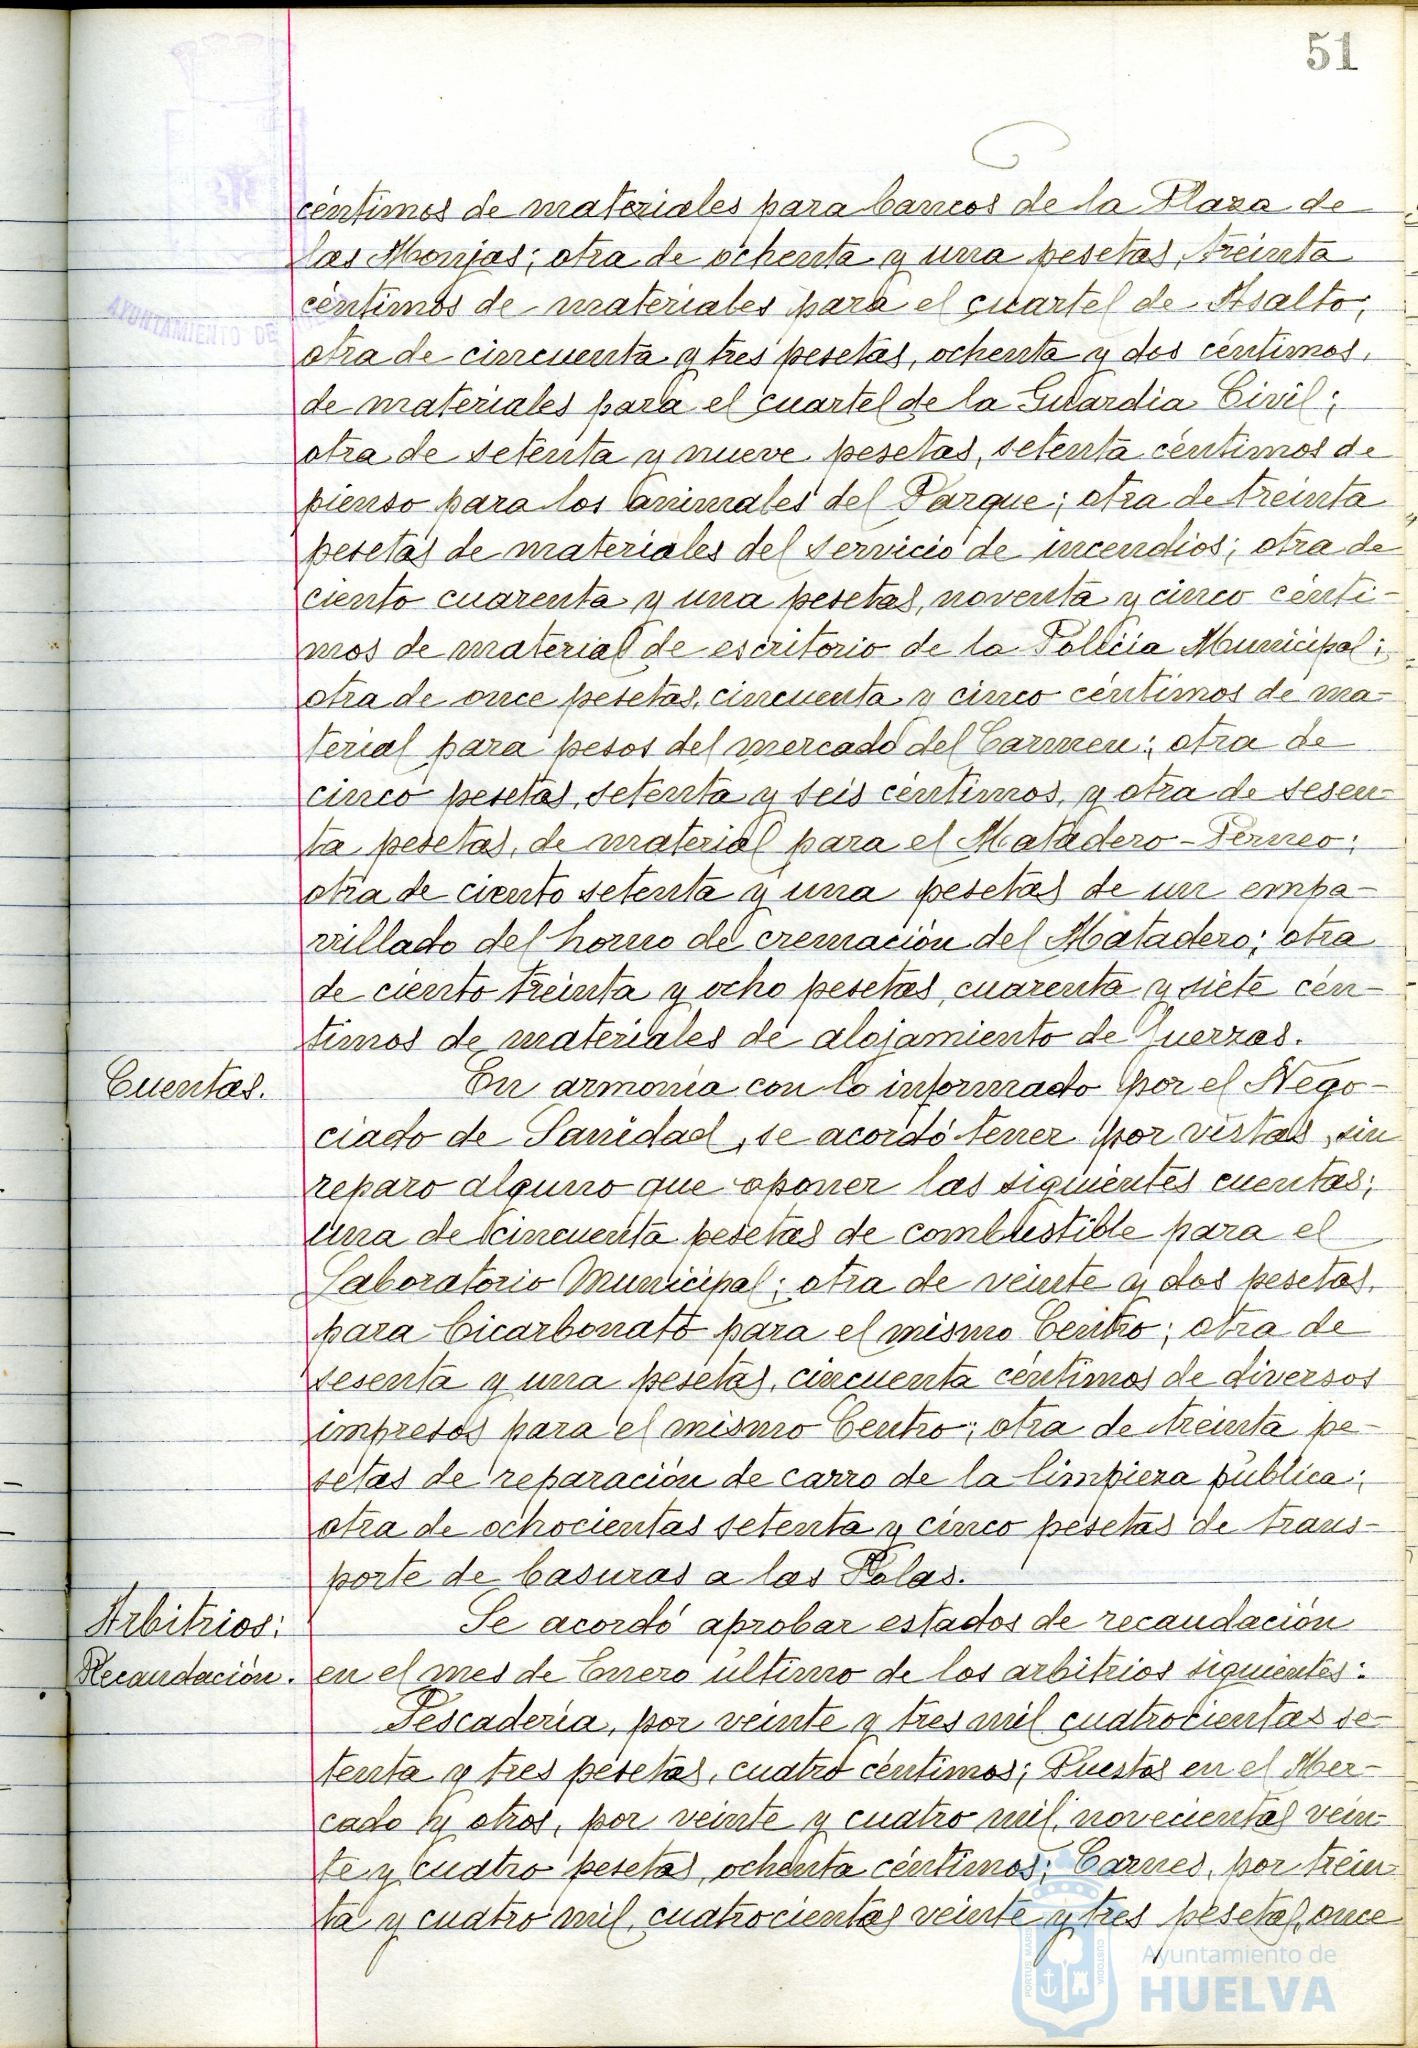 51
céntimos de materiales para bancos de la Plaza de
las Monjas; otra de ochenta y una pesetas, treinta
céntimos de materiales para el cuartel de Asalto;
otra de cincuenta y tres pesetas, ochenta y dos céntimos,
de materiales para el cuartel de la Guardia Civil;
otra de setenta y nueve pesetas, setenta céntimos de
pienso para los animales del Parque; otra de treinta
pesetas de materiales del servicio de incendios; otra de
ciento cuarenta y una pesetas, noventa y cinco cénti-
mos de material de escritorio de la Policia Municipal;
otra de once pesetas, cincuenta y cinco céntimos de ma-
terial para pesos del mercado del Carmen; otra de
cinco pesetas, setenta y seis céntimos, y otra de sesen-
ta pesetas, de material para el Matadero-Perneo;
otra de ciento setenta y una pesetas de un empa-
rrillado del horno de cremación del Matadero; otra
de ciento treinta y ocho pesetas, cuarenta y siete cén-
timos de materiales de alojamiento de fuerzas.
Cuentas.
En armonía con lo informado por el Nego-
ciado de Sanidad, se acordó tener por vistas, sin
reparo alguno que oponer las siguientes cuentas;
una de cincuenta pesetas de combustible para el
Laboratorio Municipal; otra de veinte y dos pesetas,
para bicarbonato para el mismo Centro; otra de
sesenta y una pesetas, cincuenta céntimos de diversos
impresos para el mismo Centro; otra de treinta pe-
setas de reparación de carro de la limpieza pública;
otra de ochocientas setenta y cinco pesetas de trans-
porte de basuras a las
Arbitrios:
Recaudación.
Se acordó aprobar estados de recaudación
en el mes de Enero último de los arbitrios siguientes:
Pescadería, por veinte y tres mil cuatrocientas se-
tenta y tres pesetas, cuatro céntimos; Puestos en el Mer-
cado y otros, por veinte y cuatro mil novecientas vein-
te y cuatro pesetas, ochenta céntimos; Carnes, por trein-
ta y cuatro mil cuatrocientas veinte y tres pesetas, once
AYUNTAMIENTO DE
Ayuntamiento de
HUELVA